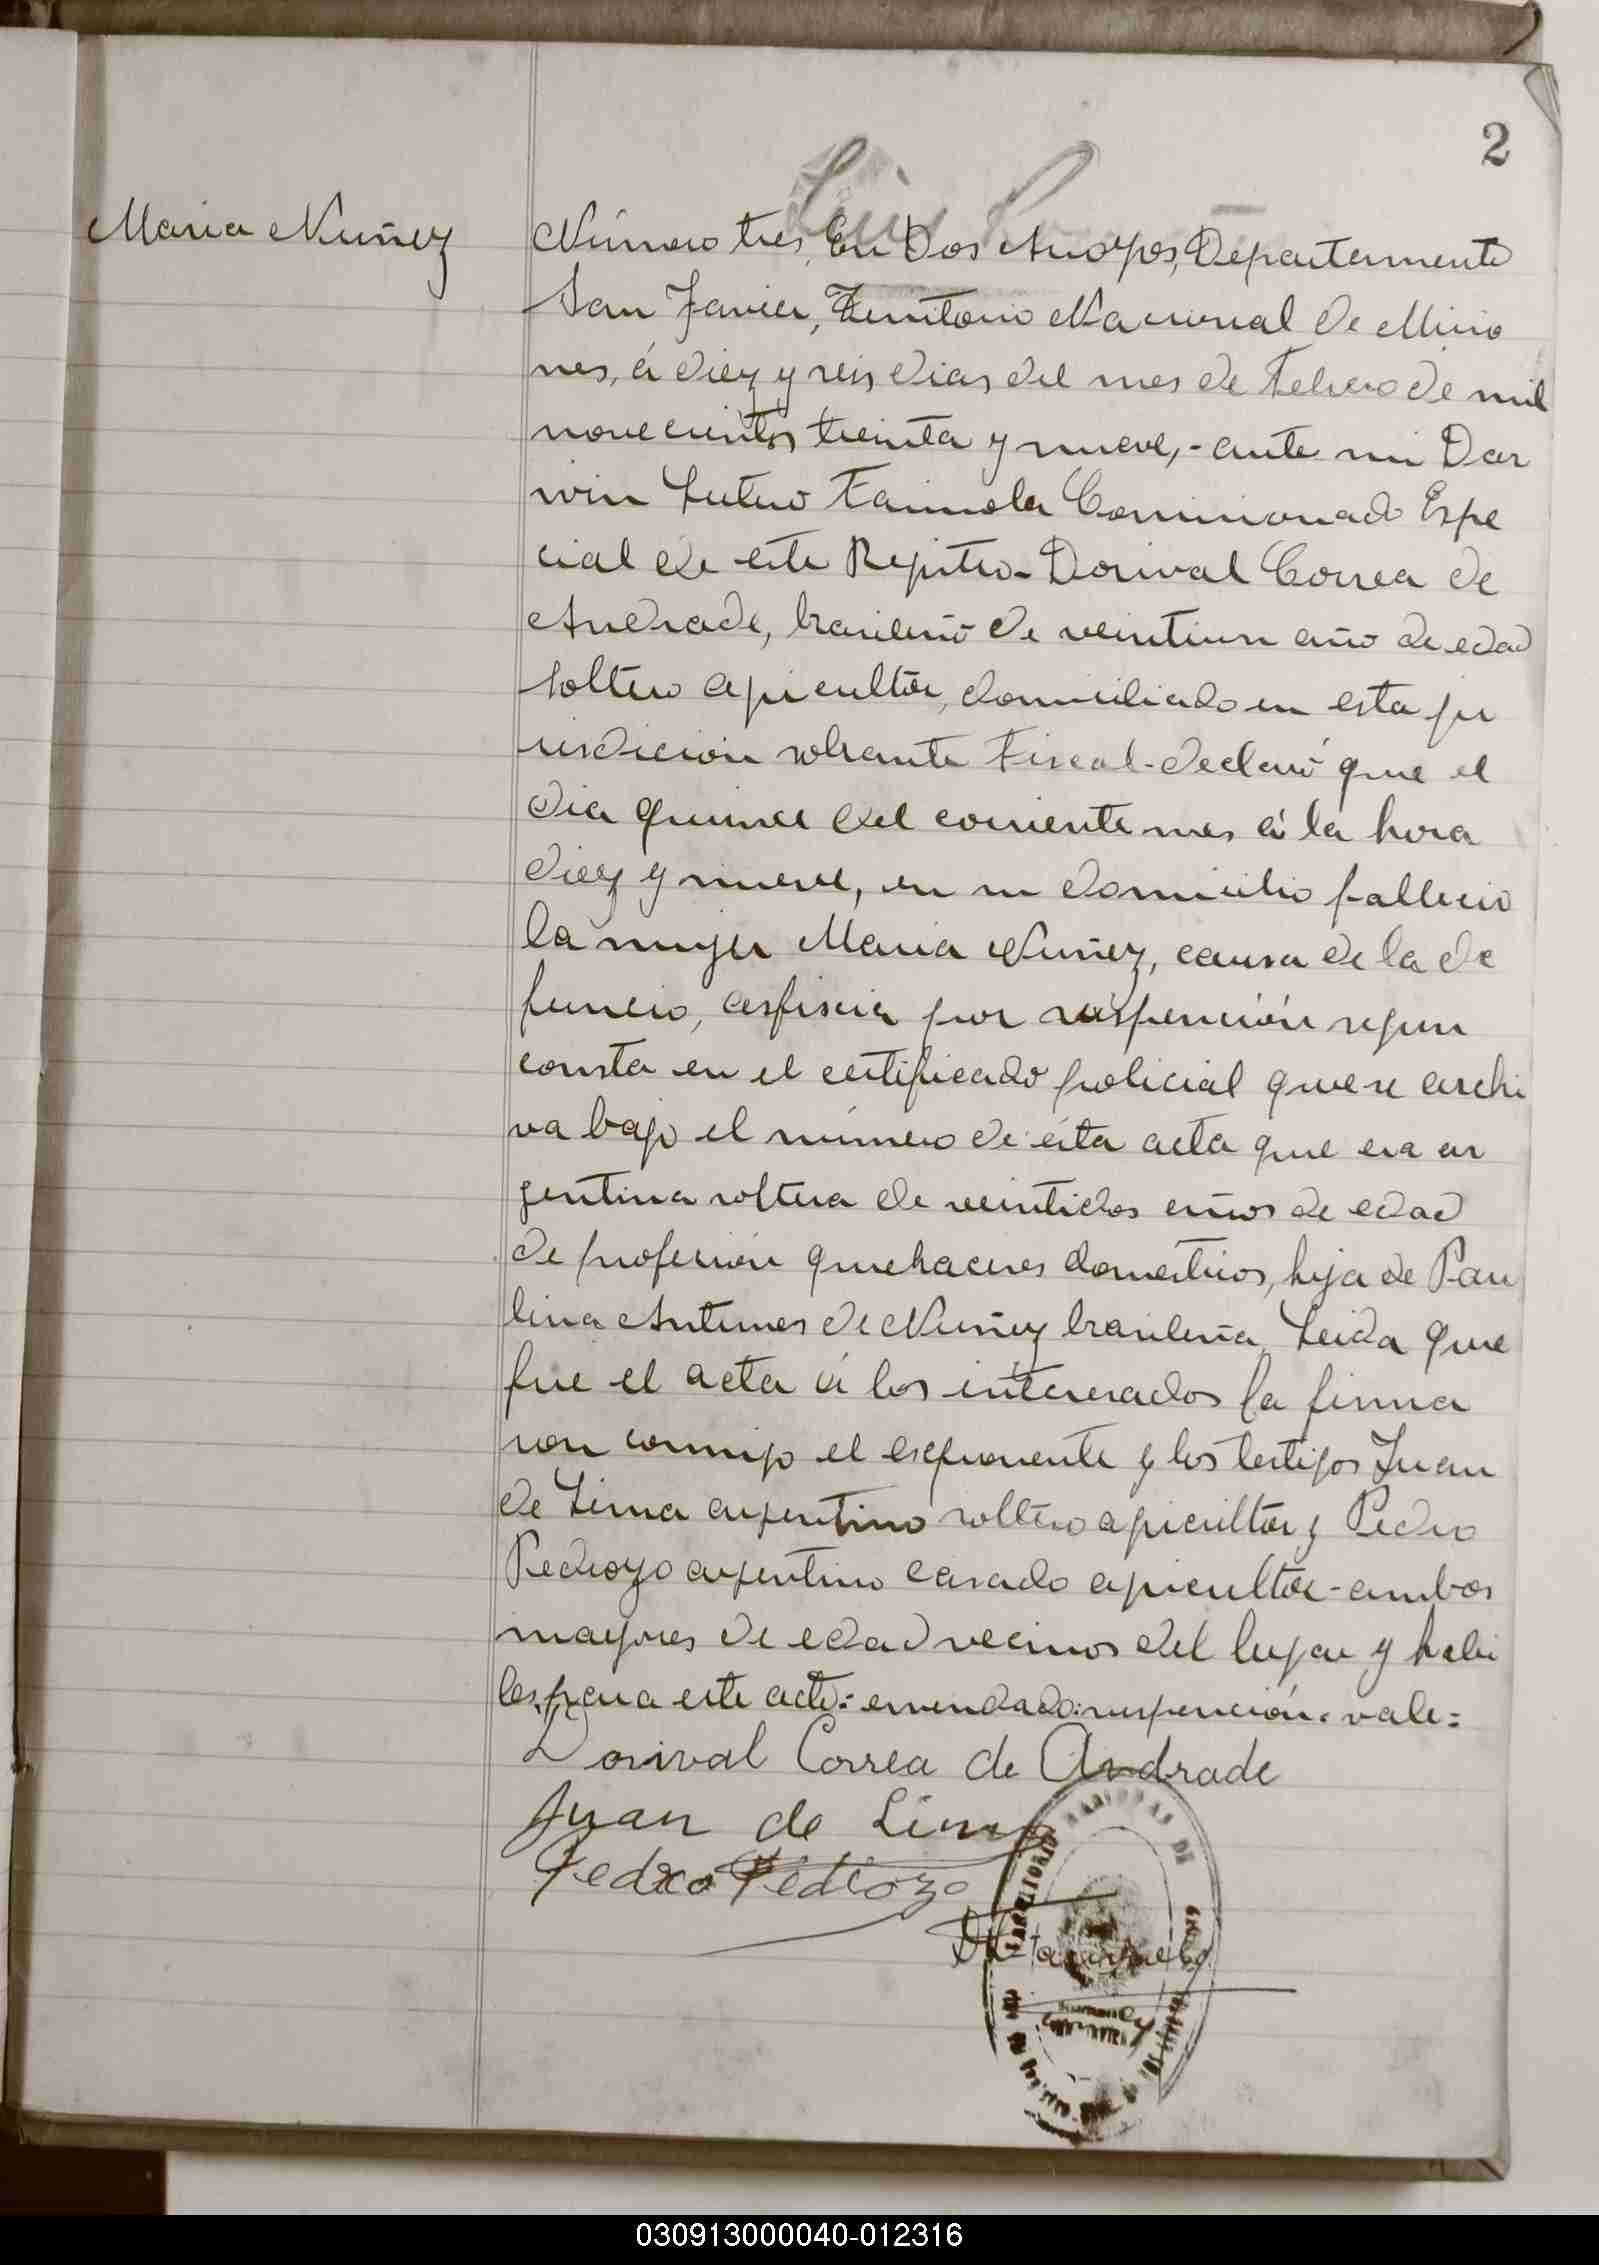 2
Maria Nuñez
Número tres, En Dos Arroyos, Departamento
San Javier, Territorio Nacional de Misio
nes, á diez y seis dias del mes de Febrero de mil
novecientos treinta y nueve,- ante mi Dar
win Comisionado Espe
cial de este Registro- Dorival Correa de
Andrade, brasileño de veintiun año de edad
soltero agricultor, domiciliado en esta ju
risdicion sobrante Fiscal-declaró que el
dia quince del corriente mes á la hora
diez y nueve, en su domicilio fallecio
la mujer Maria Nuñez, causa de la de
funcio, asfiscia por suspención segun
consta en el certificado policial que se archi
va bajo el número de ésta acta que era ar
gentina soltera de veintidos años de edad
de profesión quehaceres domesticos, hija de Pau
lina Antunes de Nuñez brasileña. Leida que
fue el acta á los interesados la firma
ron conmigo el exponente y los testigos Juan
de Lima argentino soltero agricultor y Pedro
Pedrozo argentino casado agricultor-ambos
mayores de edad vecinos del lugar y habi
les para este acto:= enmendado:suspención. vale=
Dorival Correa de Andrade
Juan de Lima
Pedro Pedrozo
030913000040-012316